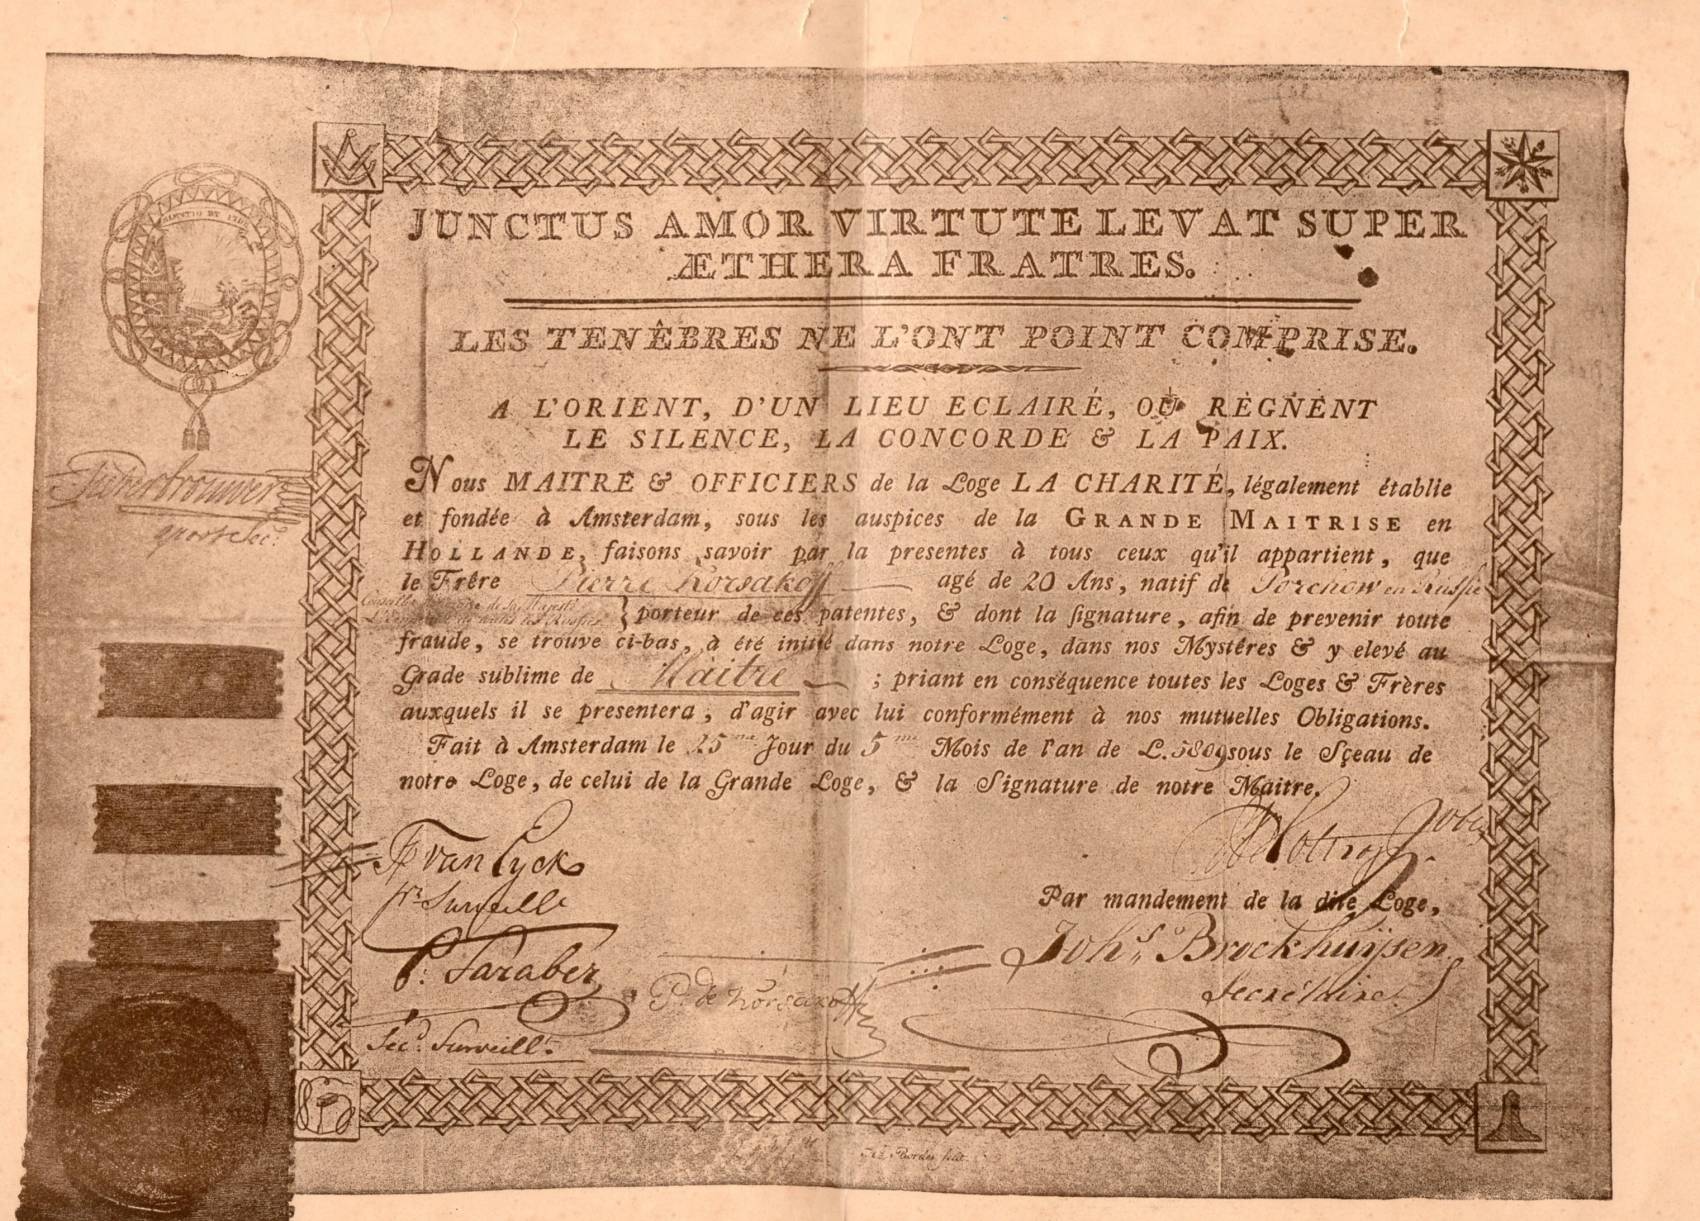 JUNCTUS AMOR VIRTUTE LEVAT SUPER
ÆTHERA FRATRES.
LES TENÊBRES NE L'ONT POINT COMPRISE.
A L'ORIENT, D'UN LIEU ECLAIRÉ, OÙ RÈGNENT
LE SILENCE, LA CONCORDE & LA PAIX.
Nous MAITRE & OFFICIERS de la Loge LA CHARITÉ, légalement établie
et fondée à Amsterdam, sous les auspices de la GRANDE MAITRISE en
HOLLANDE, faisons savoir par la presentes à tous ceux qu'il appartient, que
le Frére Pierre Korsakoff agé de 20 Ans, natif de Porchow en Russie
porteur de ces patentes, & dont la signature, afin de prevenir toute
fraude, se trouve ci-bas, à été initié dans notre Loge, dans nos Mystéres & y elevé au
Grade sublime de Maitre ; priant en conséquence toutes les Loges & Frères
auxquels il se presentera, d'agir avec lui conformément à nos mutuelles Obligations.
Fait à Amsterdam le 25me Jour du 5me Mois de l'an de L. 5809 sous le Sçeau de
notre Loge, de celui de la Grande Loge, & la Signature de notre Maitre.
van Eyck
pr. Surveille
Par mandement de la dite Loge,
P. Saraber
Joh.s Brockhuijsen
Secrétaire
P. de Korsakoff
Sec.d Surveill.